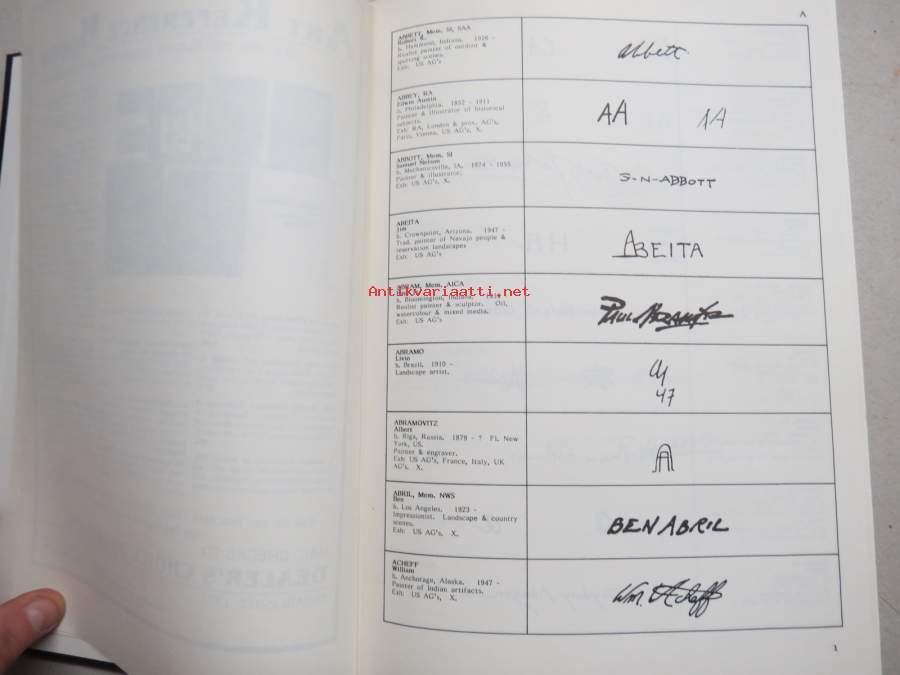 A
ABBETT, Mem. SI, SAA
Robert K.
b. Hammond, Indiana. 1926 -
Realist painter of outdoor &
sporting scenes.
Exh: US AG's
abbett
ABBEY, RA
Edwin Austin
b. Philadelphia. 1852 - 1911
Painter & illustrator of historical
subjects.
Exh: RA, London & prov. AG's,
Paris, Vienna, US AG's, X.
AA
AA
ABBOTT, Mem. SI
Samuel Nelson
b. Mechanicsville, IA. 1874 - 1955
Painter & illustrator.
Exh: US AG's, X.
S-N-ABBOTT
ABEITA
Jim
b. Crownpoint, Arizona. 1947 -
Trad. painter of Navajo people &
reservation landscapes
Exh: US AG's
ABEITA
Antikvariaatti.net
ABRAM, Mem. AICA
b. Bloomington, Indiana.
Realist painter & sculptor. Oil,
watercolour & mixed media.
Exh: US AG's
PAUL ABRAM JR
ABRAMO
Livio
b. Brazil. 1910 -
Landscape artist.
47
ABRAMOVITZ
Albert
b. Riga, Russia. 1879 - ? Fl. New
York, US.
Painter & engraver.
Exh: US AG's, France, Italy, UK
AG's. X.
A
ABRIL, Mem. NWS
Ben
b. Los Angeles. 1923 -
Impressionist. Landscape & country
scenes.
Exh: US AG's. X.
BEN ABRIL
ACHEFF
William
b. Anchorage, Alaska. 1947 -
Painter of Indian artifacts.
Exh: US AG's, X.
Wm. Acheff
1